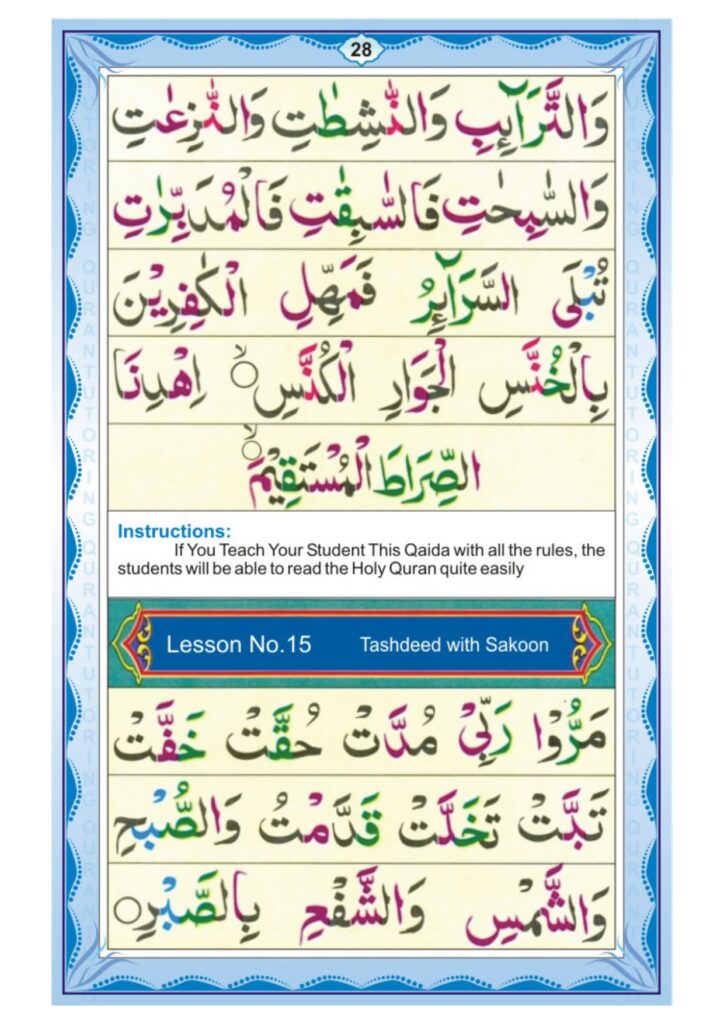 28
وَالتَّرَآئِبِ وَالنّٰشِطٰتِ وَالنّٰزِعٰتِ
وَالسّٰبِحٰتِ فَالسّٰبِقٰتِ فَالْمُدَبِّرٰتِ
تُبْلَى السَّرَآئِرُ فَمَهِّلِ الْكٰفِرِيْنَ
بِالْخُنَّسِ الْجَوَارِ الْكُنَّسِ ۙ اِهْدِنَا
الصِّرَاطَ الْمُسْتَقِيْمَ ۙ
Instructions:
If You Teach Your Student This Qaida with all the rules, the
students will be able to read the Holy Quran quite easily
Lesson No.15 Tashdeed with Sakoon
مَرُّوْا رَبِّيْ مُدَّتْ حُقَّتْ خَفَّتْ
تَبَّتْ تَخَلَّتْ قَدَّمْتُ وَالصُّبْحِ
وَالشَّمْسِ وَالشَّفْعِ بِالصَّبْرِ
QURANTUTORING QURANTUTORING QURANTUTORING
QURANTUTORING QURANTUTORING QURANTUTORING